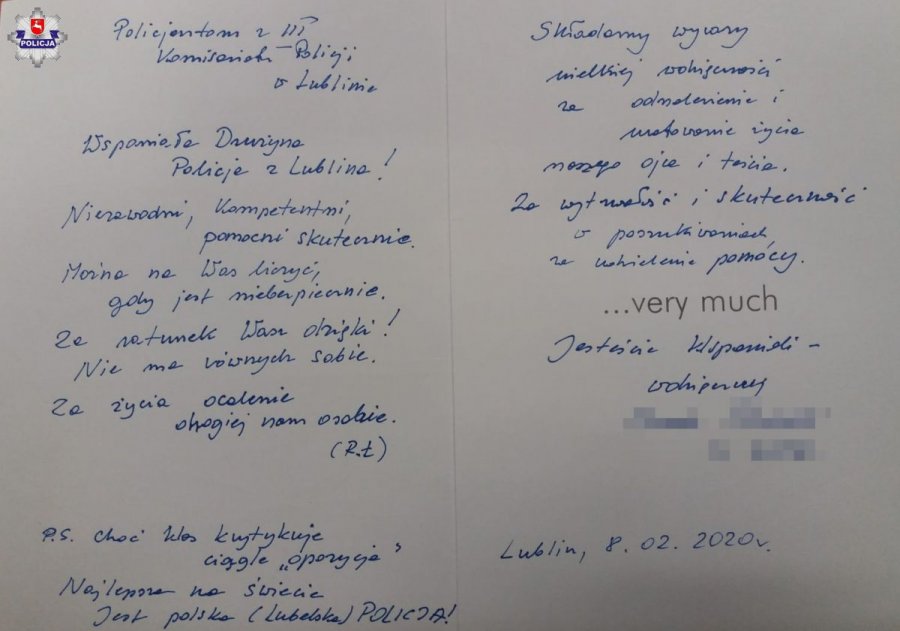 POLICJA
Policjantom z III
Komisariatu Policji
w Lublinie
Wspaniała Drużyna
Policja z Lublina!
Niezawodni, Kompetentni,
pomocni skutecznie.
Można na Was liczyć,
gdy jest niebezpiecznie.
Za ratunek Wasz dzięki!
Nie ma równych sobie.
Za życia ocalenie
drogiej nam osobie.
(R.Ł)
P.S. choć Was krytykuje
ciągle „opozycja"
Najlepsza na świecie
Jest polska (Lubelska) POLICJA!
Składamy wyrazy
wielkiej wdzięczności
za odnalezienie i
uratowanie życia
naszego ojca i teścia.
Za wytrwałość i skuteczność
w poszukiwaniach
za udzielenie pomocy.
...very much
Jesteście Wspaniali -
wdzięczny
Lublin, 8. 02. 2020r.